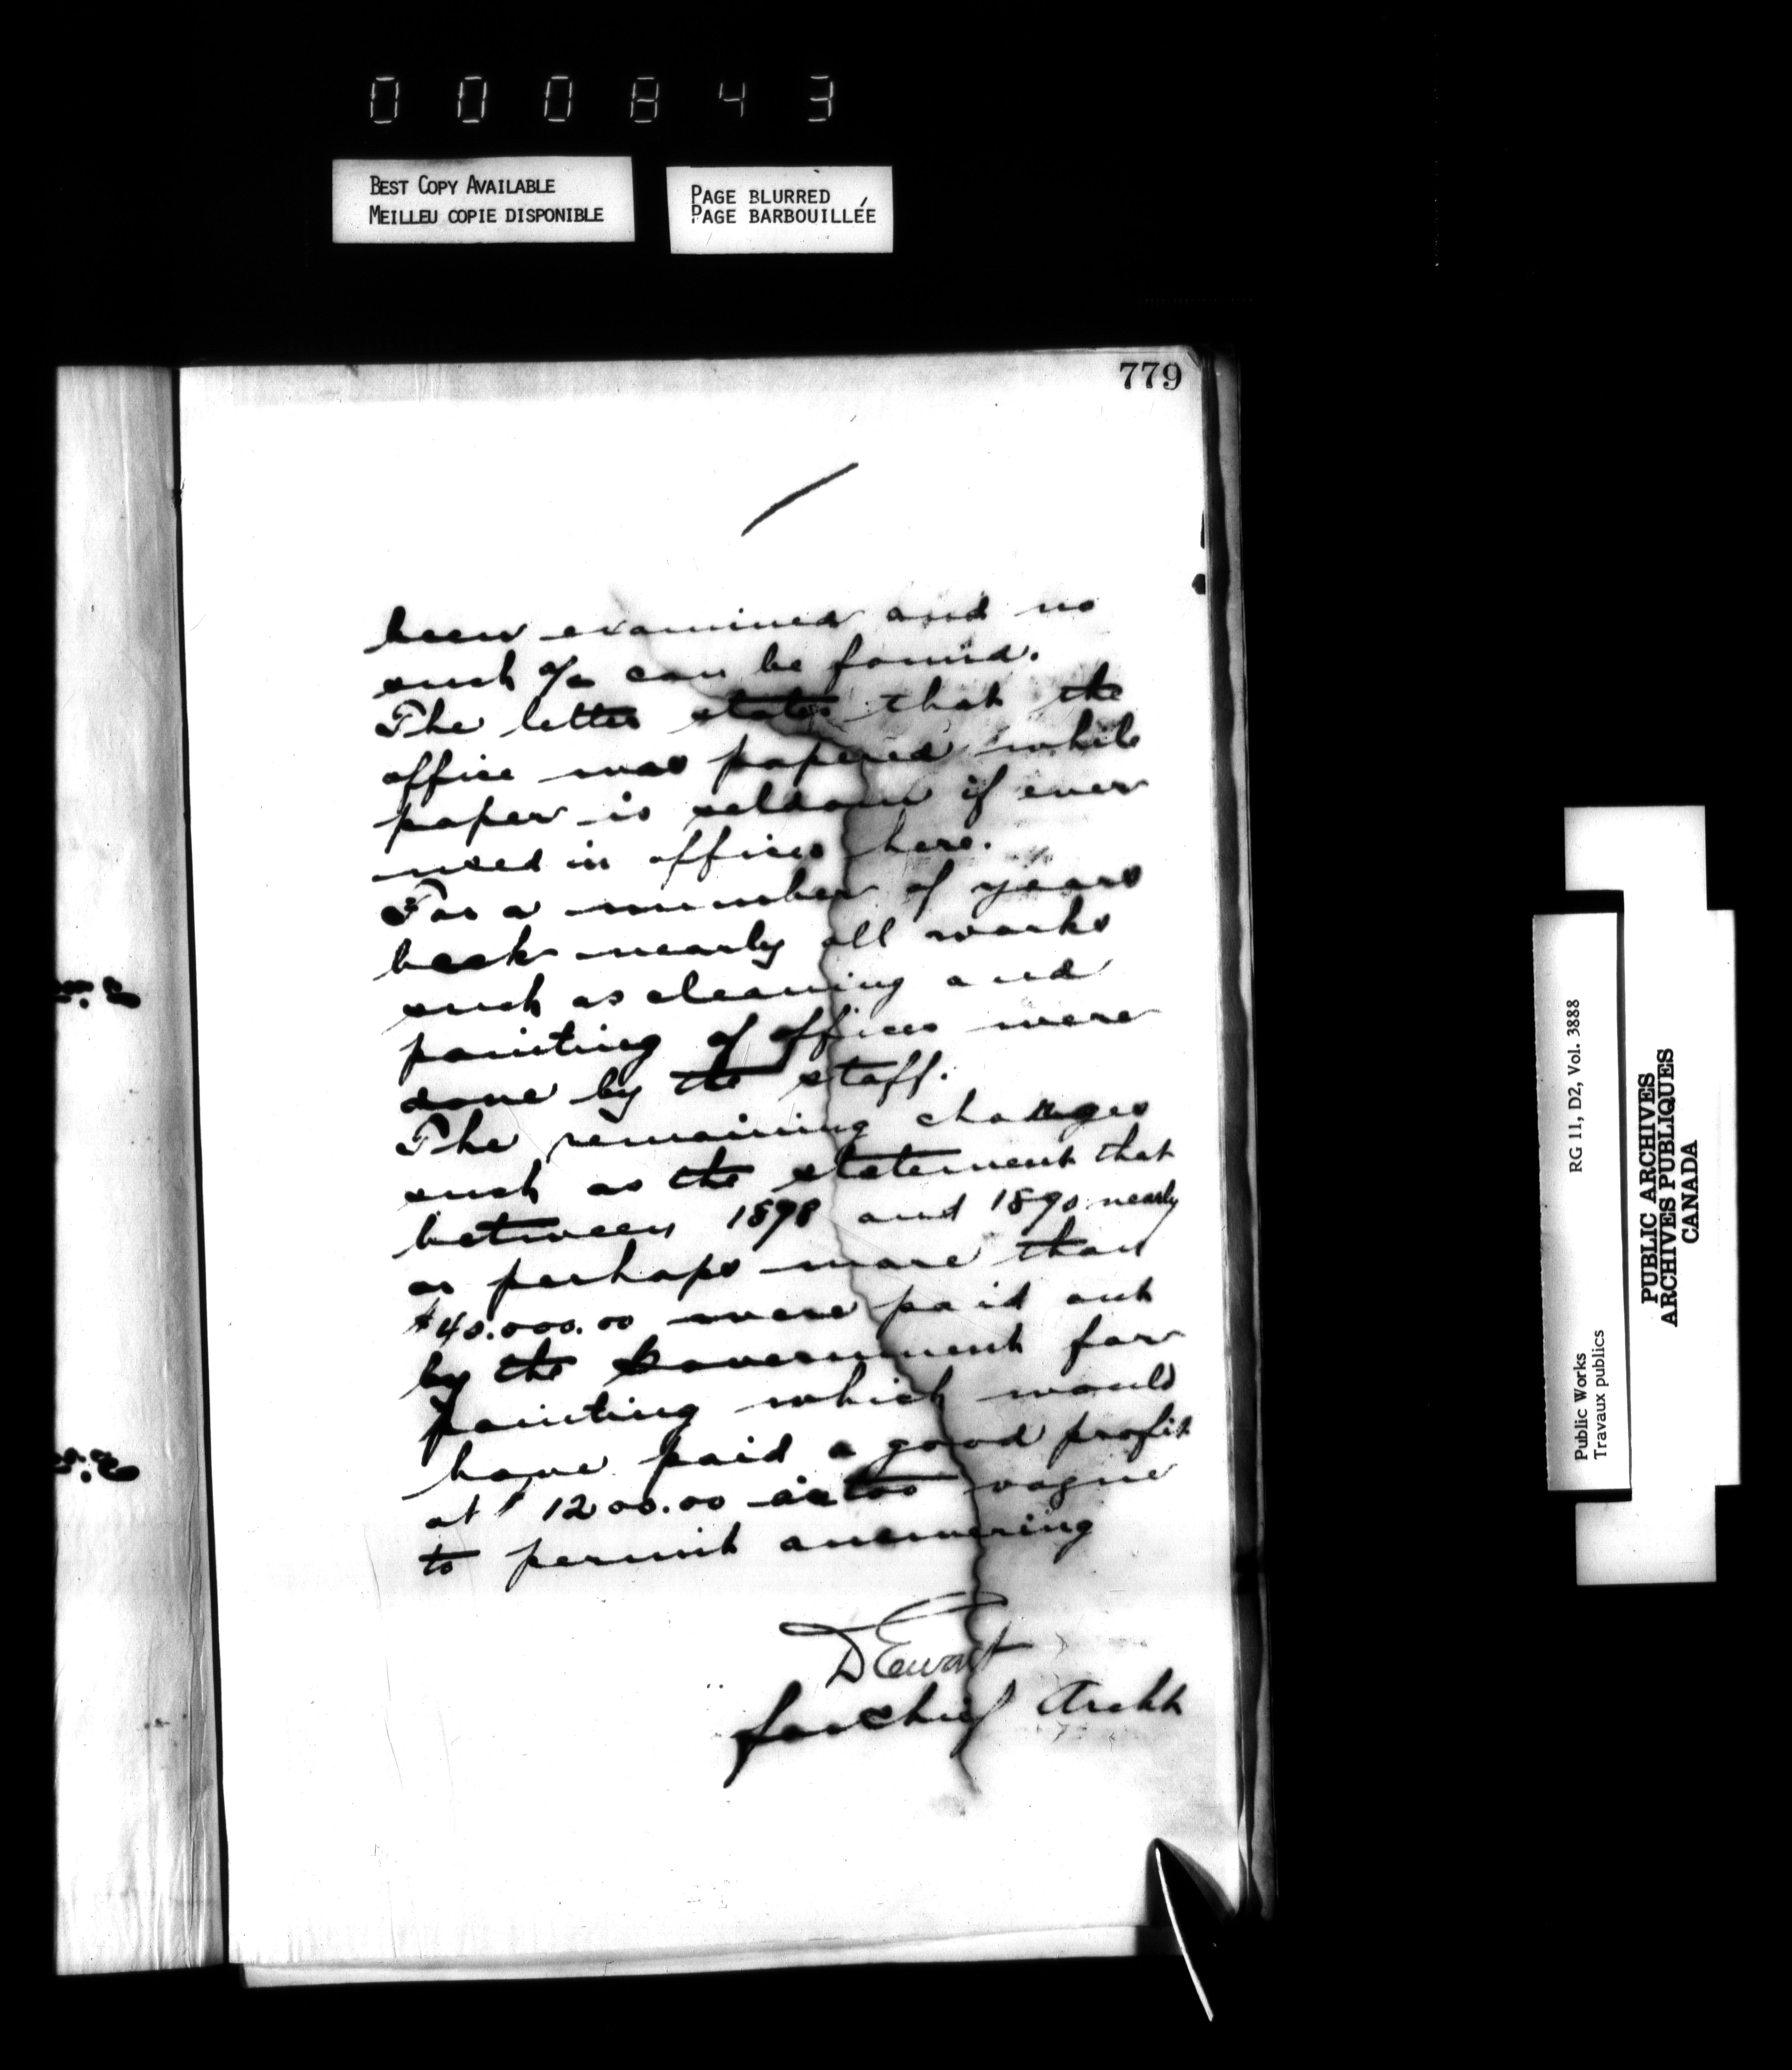 000843
BEST COPY AVAILABLE
MEILLEU COPIE DISPONIBLE
PAGE BLURRED
PAGE BARBOUILLÉE
779
been examined and no
such a/c can be found.
The letter states that the
office was papered while
paper is seldom if ever
used in offices here.
For a number of years
back nearly all works
such as cleaning and
painting of offices were
done by the staff.
The remaining charges
such as the statement that
between 1878 and 1890 nearly
or perhaps more than
$40.000.00 were paid out
by the Government for
painting which would
have paid a good profit
at $1200.00 is too vague
to permit answering
D Ewart
for Chief Archt
RG 11, D2, Vol. 3888
Public Works
Travaux publics
PUBLIC ARCHIVES
ARCHIVES PUBLIQUES
CANADA